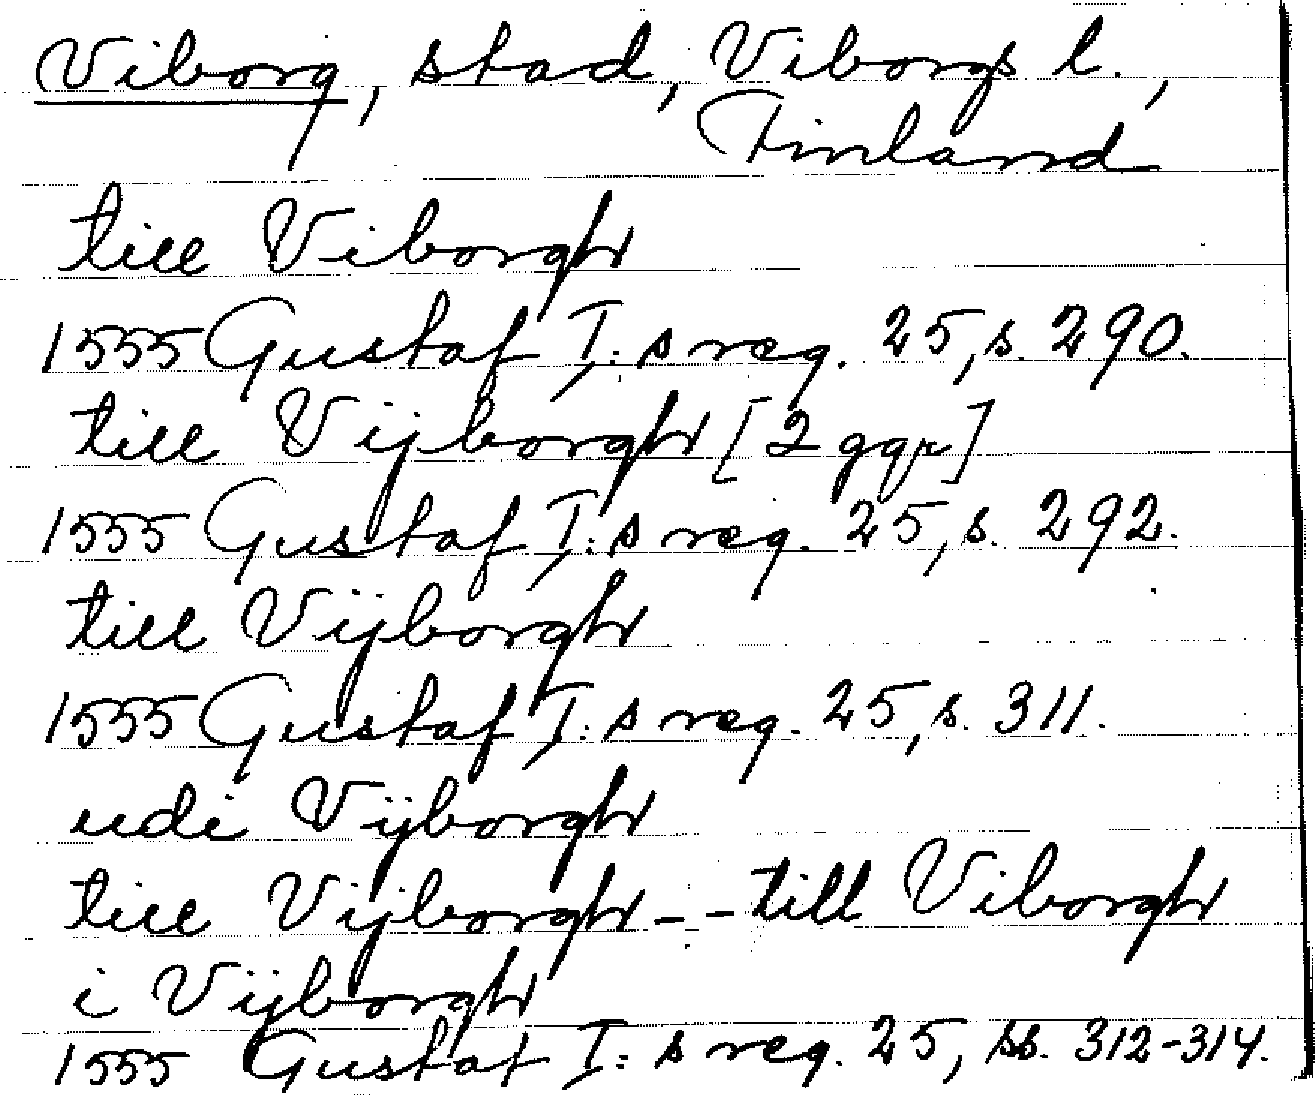 Viborg, stad, Viborgs l.,
Finland
till Viborgh
1555 Gustaf I:s reg. 25, s. 290.
till Vijborgh [2 ggr]
1555 Gustaf I:s reg. 25, s. 292.
till Vijborgh
1555 Gustaf I:s reg. 25, s. 311.
udi Vijborgh
till Vijborgh -- till Viborgh
i Vijborgh
1555 Gustaf I:s reg. 25, ss. 312-314.